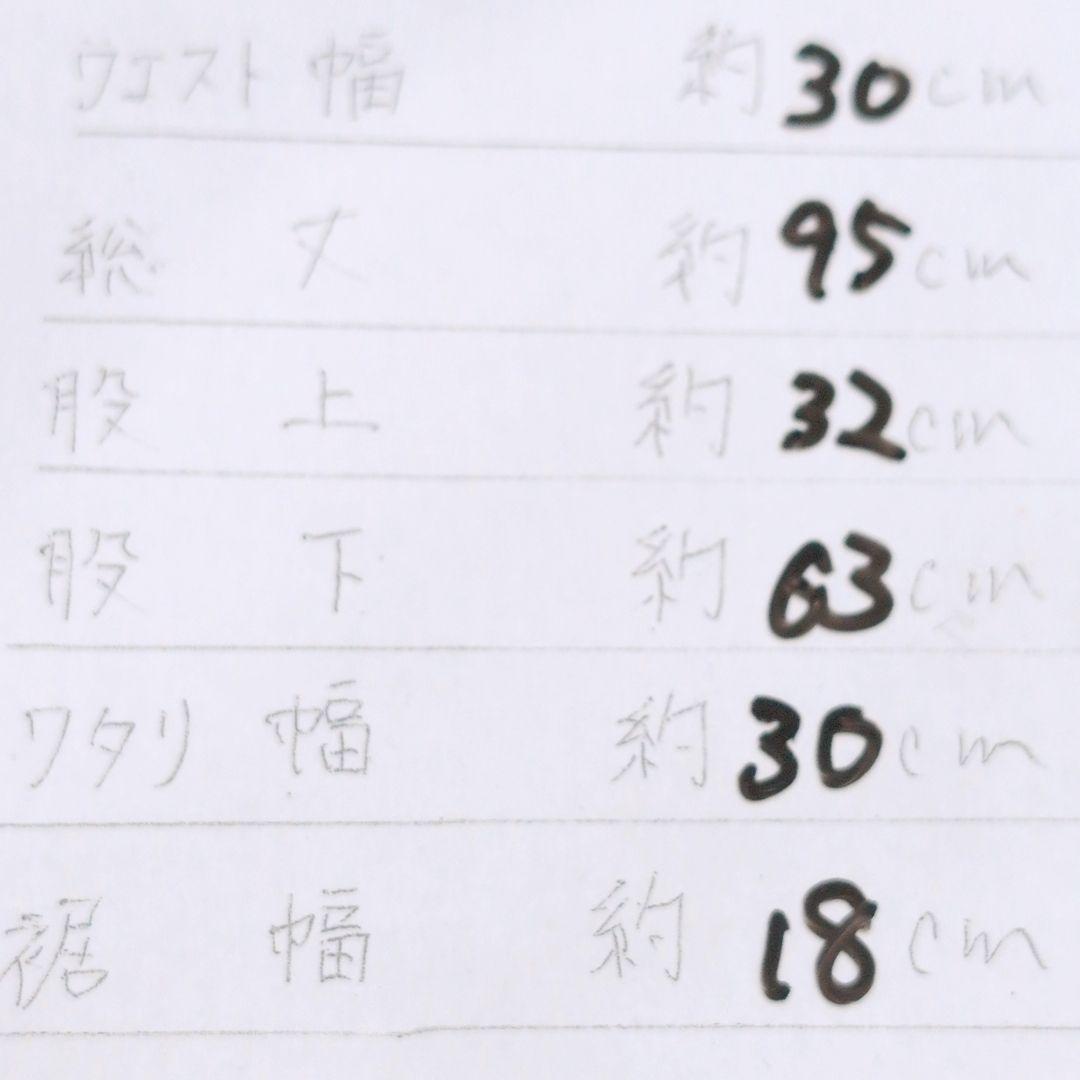 ウエスト幅 約30cm
総丈 約95cm
股上 約32cm
股下 約63cm
ワタリ幅 約30cm
裾幅 約18cm